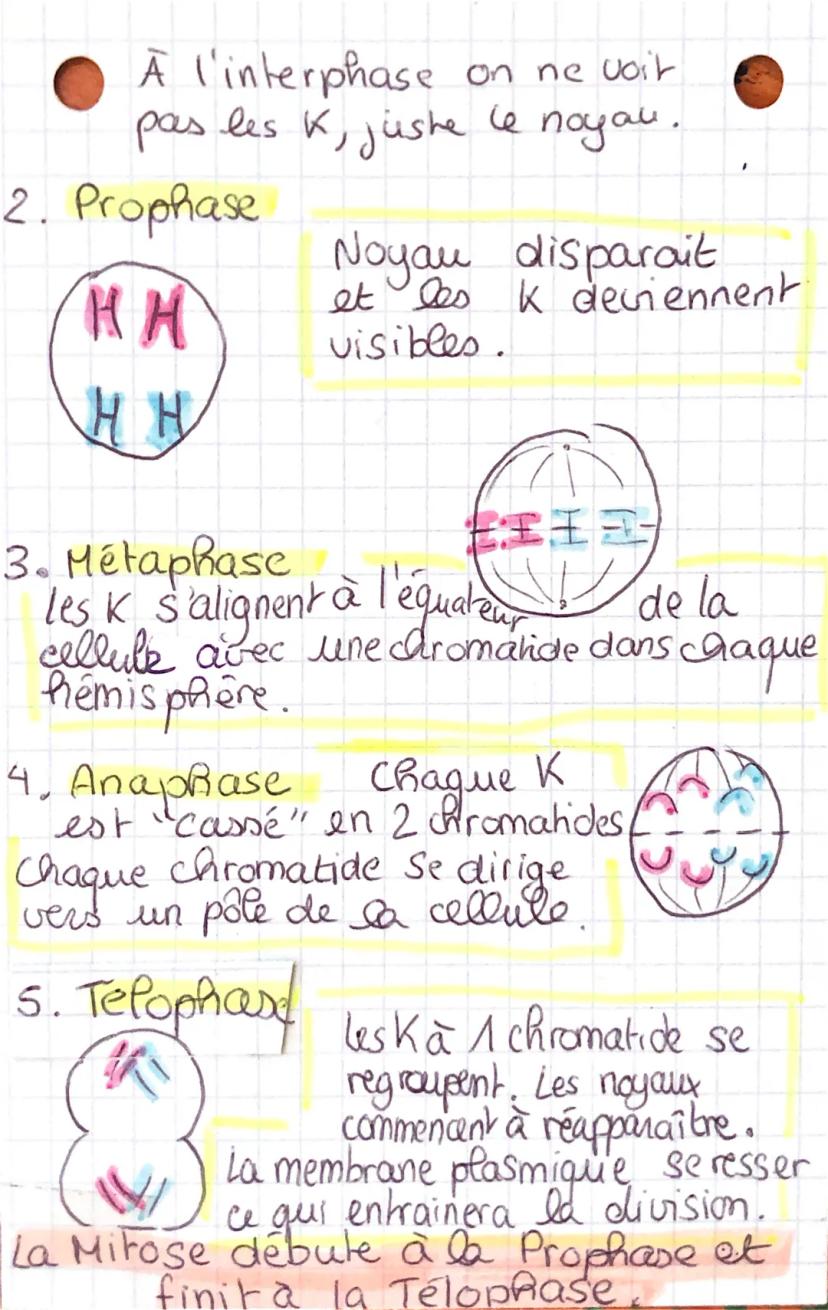 À l'interphase on ne voit
pas les K, juste le noyau.
2. Prophase
Noyau disparait
et les K deviennent
visibles.
3. Métaphase
les K s'alignent à l'équateur de la
cellule avec une chromatide dans chaque
hémisphère.
4. Anaphase Chaque K
est "cassé" en 2 chromatides
chaque chromatide se dirige
vers un pôle de la cellule.
5. Télophase
les K à 1 chromatide se
regroupent. Les noyaux
commencent à réapparaître.
La membrane plasmique se resser
ce qui entrainera la division.
La Mitose débute à la Prophase et
finit à la Télophase.